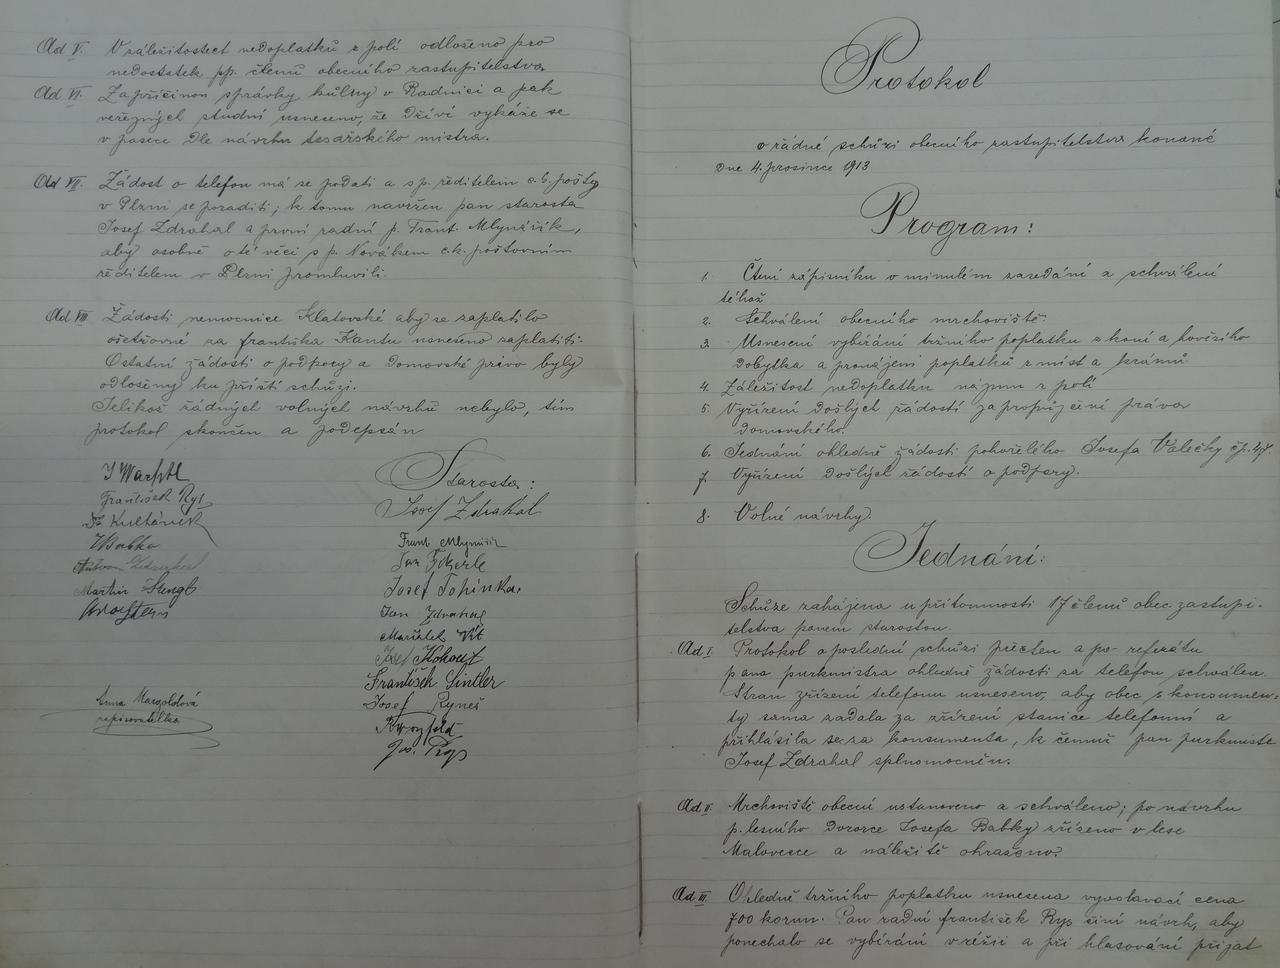 Ad V. V záležitostech nedoplatků z polí odloženo pro
nedostatek pp. členů obecního zastupitelstva.
Ad VI. Zapříčinou správky kůlny v Radnici a pak
veřejných studní usneseno, že dříví vykáže se
v pasece dle návrhu tesařského mistra.
Ad VII. Žádost o telefon má se podati a s p. ředitelem c.k. pošty
v Plzni se poraditi; k tomu navržen pan starosta
Josef Zdrahal a první radní p. Frant. Mlynářík,
aby osobně o té věci s p. Novákem c.k. poštovním
ředitelem v Plzni promluvili.
Ad VIII. Žádosti nemocnice Klatovské aby se zaplatilo
ošetřovné za františka Kantu usneseno zaplatiti.
Ostatní žádosti o podpory a domovské právo byly
odloženy ku příští schůzi.
Jelikož žádných volných návrhů nebylo, tím
protokol skončen a podepsán
František Rys
JBabka
Martin Šengl
Anna Mangoldová
zapisovatelka
Starosta:
Josef Zdrahal
Frant Mlynářík
Jan
Josef Tohinka
Jan Zdrahal
Mařátek Vít
Josef Kohout
František Šintler
Josef Ryneš
Jos. Rys
Protokol
o řádné schůzi obecního zastupitelstva konané
dne 4. prosince 1913
Program:
1. Čtení zápisníku o minulém zasedání a schválení
téhož
2. Schválení obecního mrchoviště.
3. Usnesení vybírání tržního poplatku z koní a hovězího
dobytka a pronájení poplatků z míst a krámů
4. Záležitost nedoplatku nájmu z polí
5. Vyřízení došlých žádostí za propůjčení práva
domovského.
6. Jednání ohledně žádosti pohořelého Josefa Válečky čp. 47.
7. Vyřízení došlých žádostí o podpory.
8. Volné návrhy.
Jednání:
Schůze zahájena u přítomnosti 17 členů obec. zastupi-
telstva panem starostou.
Ad I. Protokol o poslední schůzi přečten a po referátu
pana purkmistra ohledně žádosti za telefon schválen.
Stran zřízení telefonu usneseno, aby obec s konsumen-
ty sama zadala za zřízení stanice telefonní a
přihlásila se za konsumenta, k čemuž pan purkmistr
Josef Zdrahal splnomocněn.
Ad II. Mrchoviště obecní ustanoveno a schváleno; po návrhu
p. lesního dozorce Josefa Babky zřízeno v lese
Malovesce a náležitě ohraženo.
Ad III. Ohledně tržního poplatku usnesena vyvolavací cena
700 korun. Pan radní františek Rys činí návrh, aby
ponechalo se vybírání v režii a při hlasování přijat